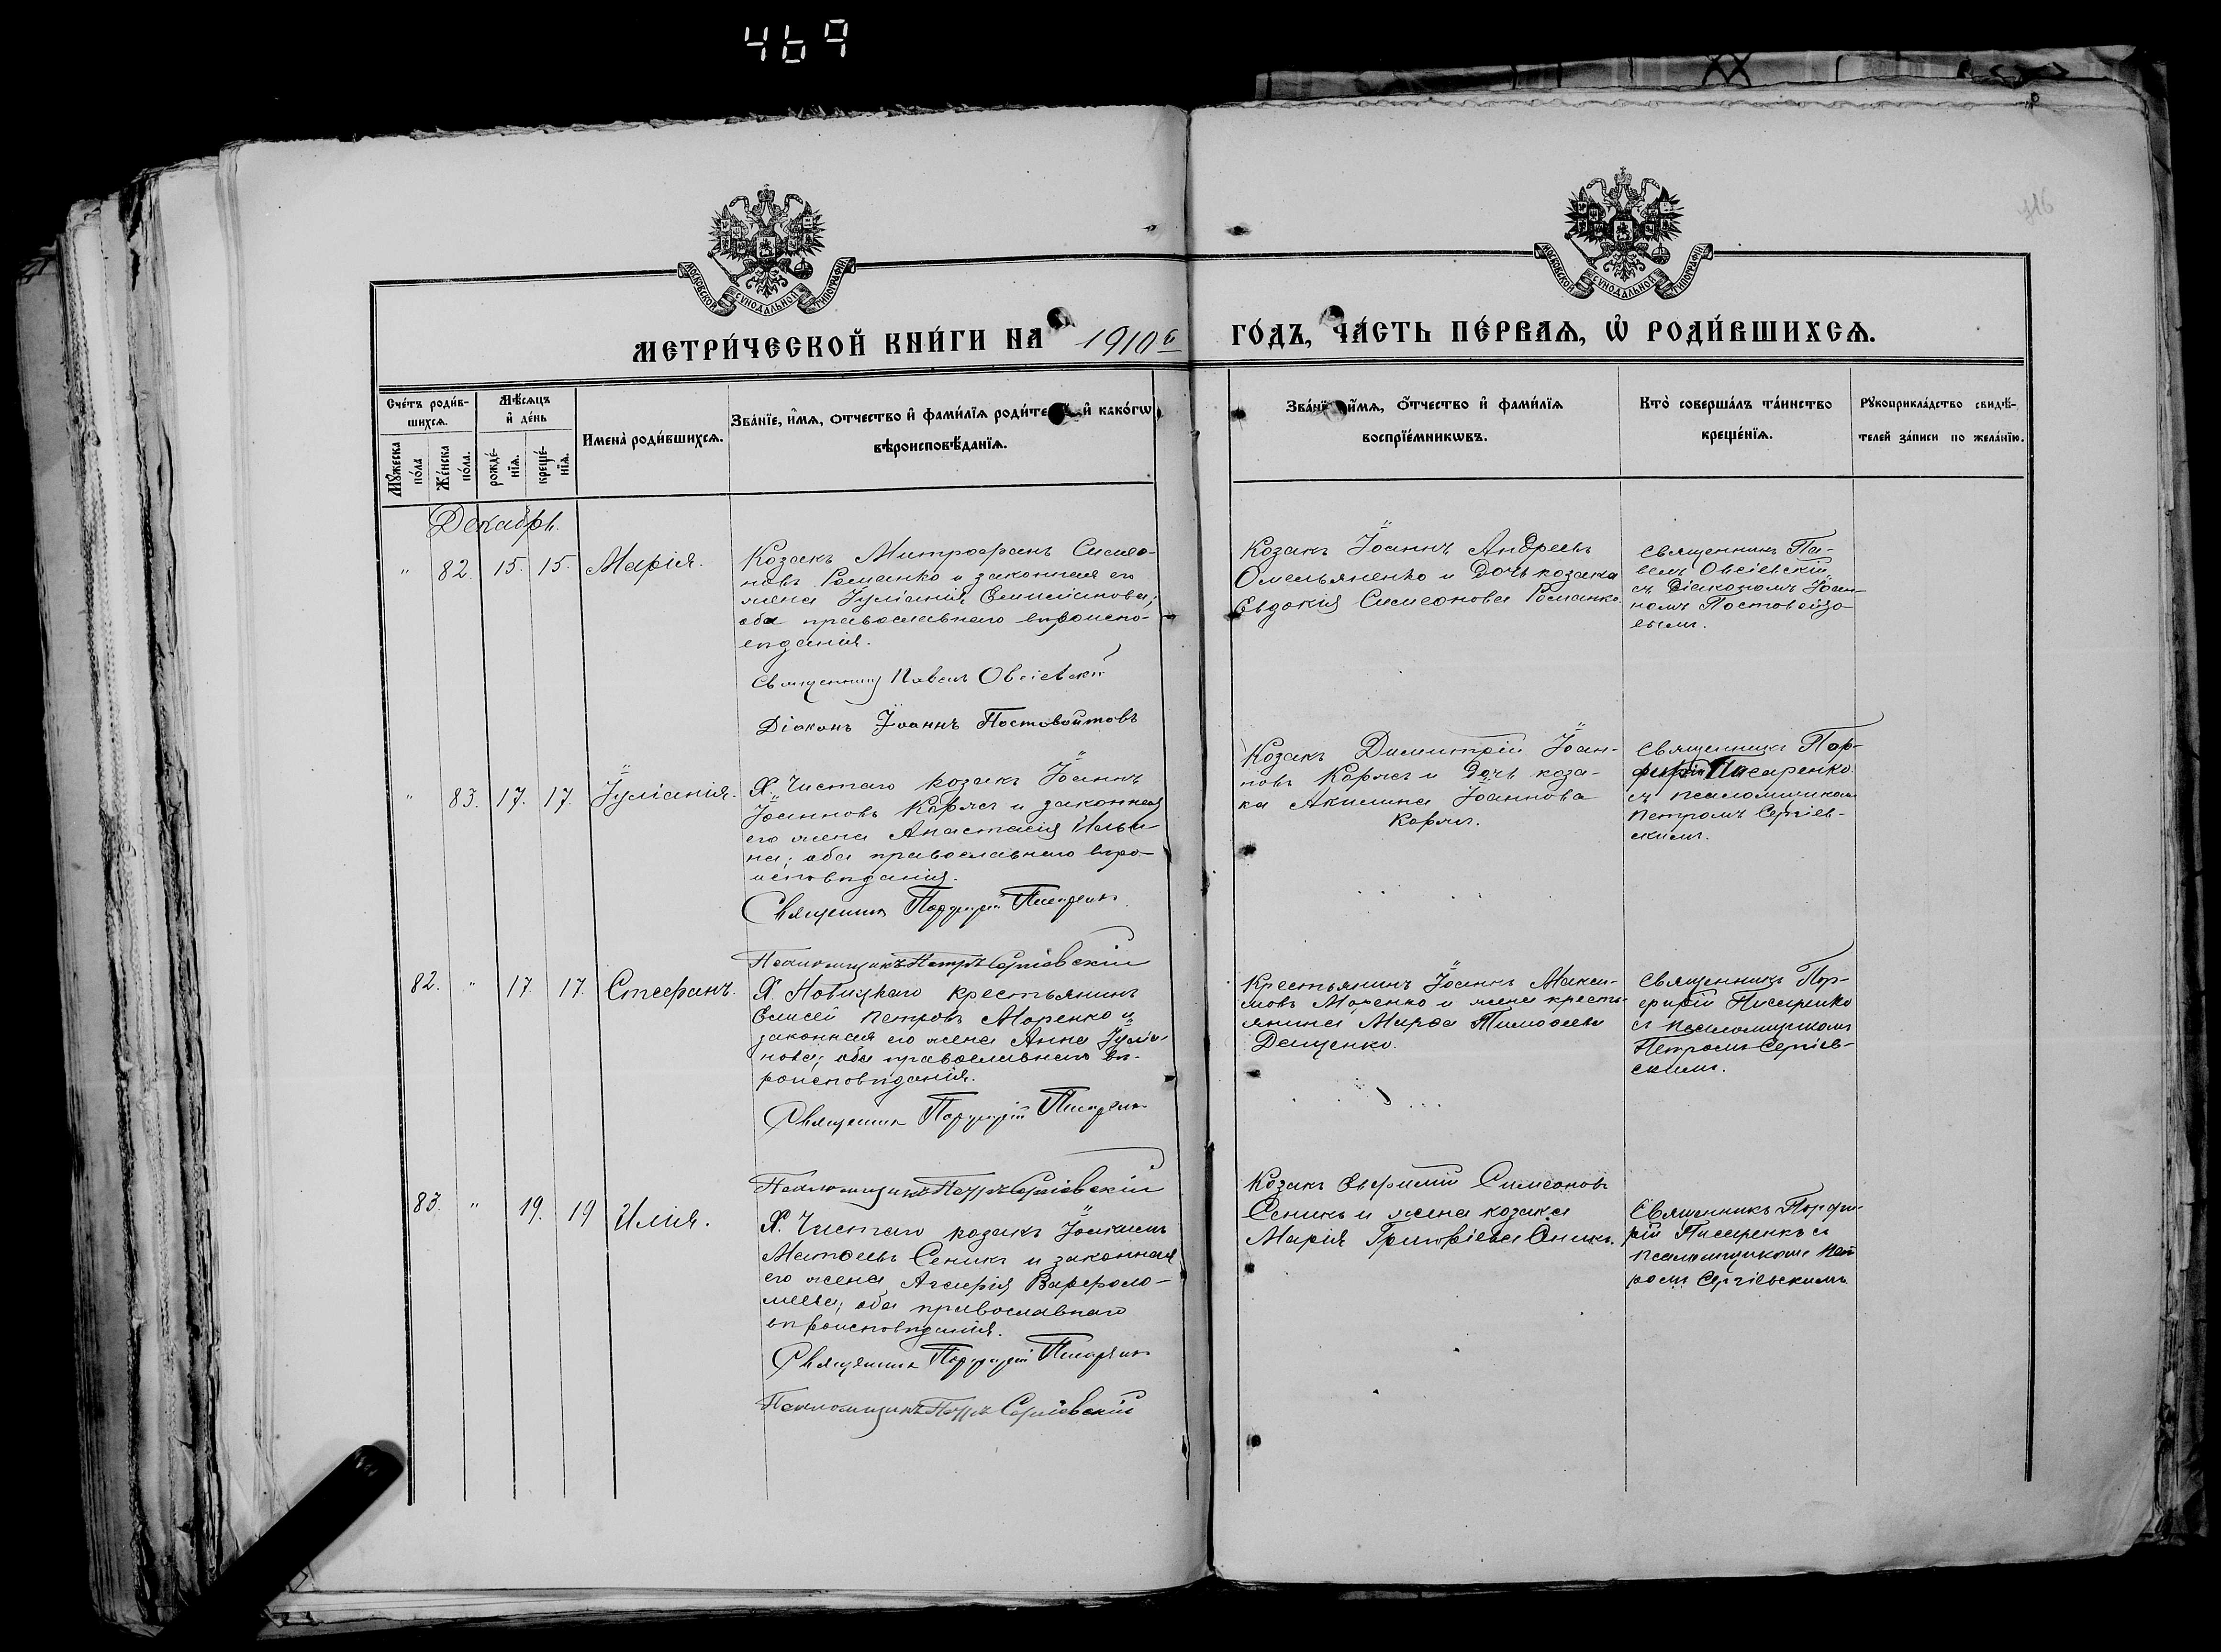 469
116
МОСКОВСКОЙ СѴНОДАЛЬНОЙ ТИПОГРАФІИ
МОСКОВСКОЙ СѴНОДАЛЬНОЙ ТИПОГРАФІИ
МЕТРИ́ЧЕСКОЙ КНИ́ГИ НА 1910й ГО́ДЪ, ЧА́СТЬ ПЕ́РВАѦ, Ѡ҆ РОДИ́ВШИХСѦ.
Сче́тъ роди́в-
шихсѧ.
Мꙋ́жеска
по́ла
Же́нска
по́ла.
Мѣ́сѧцъ
и҆ де́нь
рожде́-
нїѧ.
креще́-
нїѧ.
Имена̀ роди́вшихсѧ.
Зва́нїе, и҆́мѧ, ѻ҆тчество и҆ фами́лїѧ роди́те и҆ како́гѡ
вѣроисповѣ́данїѧ.
Зва́нїе и҆́мѧ, ѻ҆́тчество и҆ фами́лїѧ
воспрїе́мникѡвъ.
Кто̀ соверша́лъ та́инство
креще́нїѧ.
Рꙋкоприкла́дство свидѣ́-
телей за́писи по жела́нїю.
Декабрь.
" 82. 15. 15. Марія.
Козакъ Митрофанъ Симео-
новъ Романко и законная его
жена Іуліанія Емиліанова;
оба православнаго вѣроиспо-
вѣданія.
Священникъ Павелъ Овсіевскій
Діаконъ Іоаннъ Постовойтовъ
Козакъ Іоаннъ Андреевъ
Омельяненко и дочь козака
Евдокія Симеонова Романко.
Священникъ Па-
велъ Овсіевскій
съ Діакономъ Іоан-
номъ Постовойто-
вымъ.
" 83. 17. 17. Іуліанія.
Х. Чистаго козакъ Іоаннъ
Іоанновъ Коржъ и законная
его жена Анастасія Ильи-
на; оба православнаго вѣро-
исповѣданія.
Священникъ Порфирій Писаренко
Псаломщикъ Петръ Сергіевскій
Козакъ Димитрій Іоан-
новъ Коржъ и дочь коза-
ка Акилина Іоаннова
Коржъ.
Священникъ Пор-
фирій Писаренко
съ псаломщикомъ
Петромъ Сергіев-
скимъ.
82. " 17 17. Стефанъ.
Х. Новицкаго крестьянинъ
Елисей Петровъ Моренко и
законная его жена Анна Іулiа-
нова; оба православнаго вѣ-
роисповѣданія.
Священникъ Порфирій Писаренко
Псаломщикъ Петръ Сергіевскій
Крестьянинъ Іоаннъ Макси-
мовъ Моренко и жена кресть-
янина Марѳа Тимоѳеева
Дащенко.
Священникъ Пор-
фирій Писаренко
съ псаломщикомъ
Петромъ Сергіев-
скимъ.
83. " 19. 19 Илія.
Х. Чистаго козакъ Іоакимъ
Матѳеевъ Сеникъ и законная
его жена Агафія Варфоло-
меева; оба православнаго
вѣроисповѣданія.
Священникъ Порфирій Писаренко
Псаломщикъ Петръ Сергіевскій
Козакъ Евфимій Симеоновъ
Сеникъ и жена козака
Марія Григоріева Сеникъ.
Священникъ Порфи-
рій Писаренко съ
псаломщикомъ Пет-
ромъ Сергіевскимъ